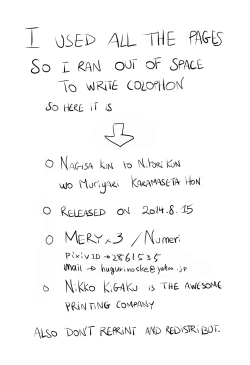 I USED ALL THE PAGES
SO I RAN OUT OF SPACE
TO WRITE COLOPHON
SO HERE IT IS
NAGISA KIN to NITORI KIN
wo Muriyari KARAMASETA HON
RELEASED ON 2014.8.15
MERY×3 / Numeri
Pixiv ID → 2861535
mail → hugurinoske@yahoo.jp
NIKKO KIGAKU IS THE AWESOME
PRINTING COMPANY
ALSO DON'T REPRINT AND REDISTRIBUT.